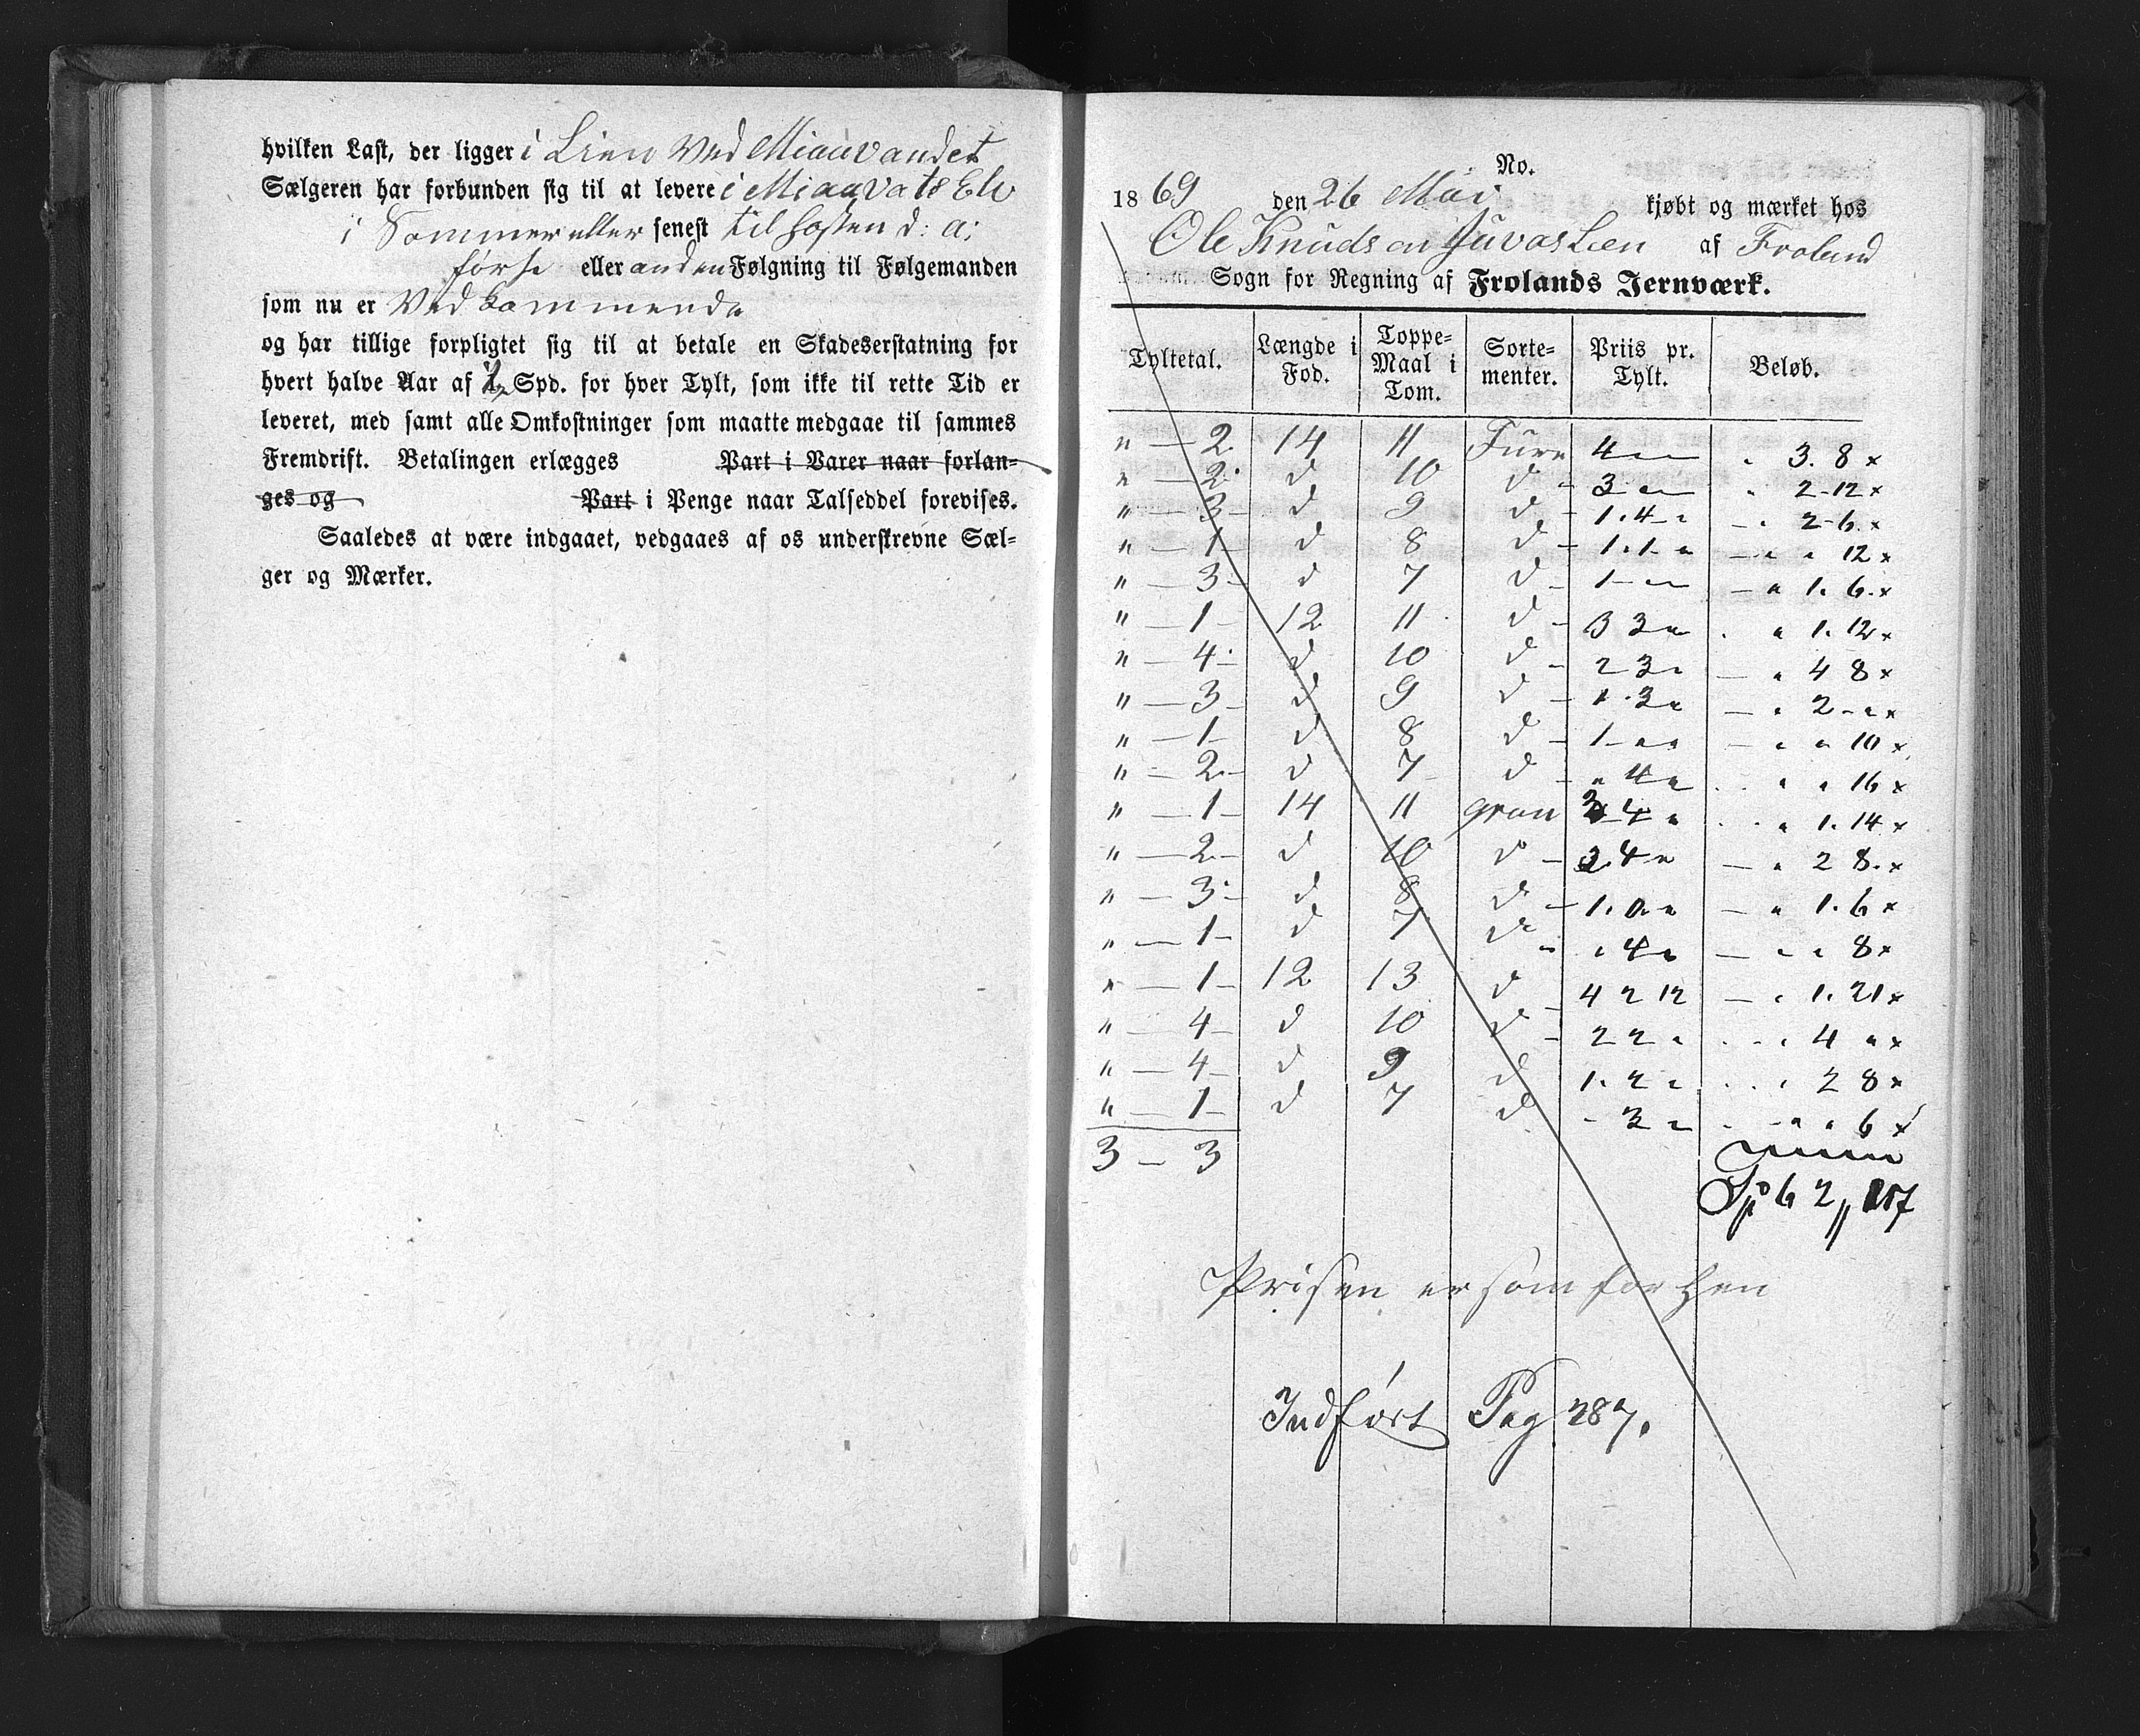 hvilken Last, der ligger i Lien ved Miauvandet
Sælgeren har forbunden sig til at levere i Miauvats Elv
i Sommer eller senest til høsten d: a:
første eller anden Følgning til Følgemanden
som nu er Vedkommende
og har tillige forpligtet sig til at betale en Skadeserstatning for
hvert halve Aar af ½ Spd. for hver Tylt, som ikke til rette Tid er
leveret, med samt alle Omkostninger som maatte medgaae til sammes
Fremdrift. Betalingen erlægges Part i Varer naar forlan-
ges og Part i Penge naar Talseddel forevises.
Saaledes at være indgaaet, vedgaaes af os underskrevne Sæl-
ger og Mærker.
No.
1869 den 26 Mai kjøbt og mærket hos
Ole Knudsen Juvas Lien af Froland
Sogn for Regning af Frolands Jernværk.
Tyltetal. Længde i Fod. Toppe-Maal i Tom. Sorte-menter. Priis pr. Tylt. Beløb.
" — 2 14 11 Furu 4 " " " 3. 8 ×
" — 2 d 10 d - 3 " " " 2-12 ×
" — 3 - d 9 d - 1. 4 - " - " 2-6. ×
" — 1 - d 8 d - 1. 1 - " - " " 12 ×
" — 3 - d 7 d - 1 - " " - " 1. 6. ×
" — 1 - 12 11 d - 3 3 " " 1. 12 ×
" — 4 - d 10 d - 2 3 " - " 4 8 ×
" — 3 - d 9 d - 1. 3 " - " 2 - " ×
" — 1 - d 8 d - 1 - " " - " " 10 ×
" — 2 - d 7 d - " 4 " " " 16 ×
" — 1 - 14 11 gran 3 4 " " 1. 14 ×
" — 2 - d 10 d - 2. 4 " - " 2 8. ×
" — 3 - d 8 d - 1. 0. " - " 1. 6 ×
" — 1 - d 7 d - " 4 " - " " 8 ×
" — 1 - 12 13 d - 4 2 12 - " 1. 21 ×
" — 4 - d 10 d - 2 2 " " 4 " ×
" — 4 - d 9 d 1. 2 " " 2 8 ×
" — 1 - d 7 d - 3 " - " " 6 ×
3 — 3
Prisen er som for hen
Indført Pag 287.